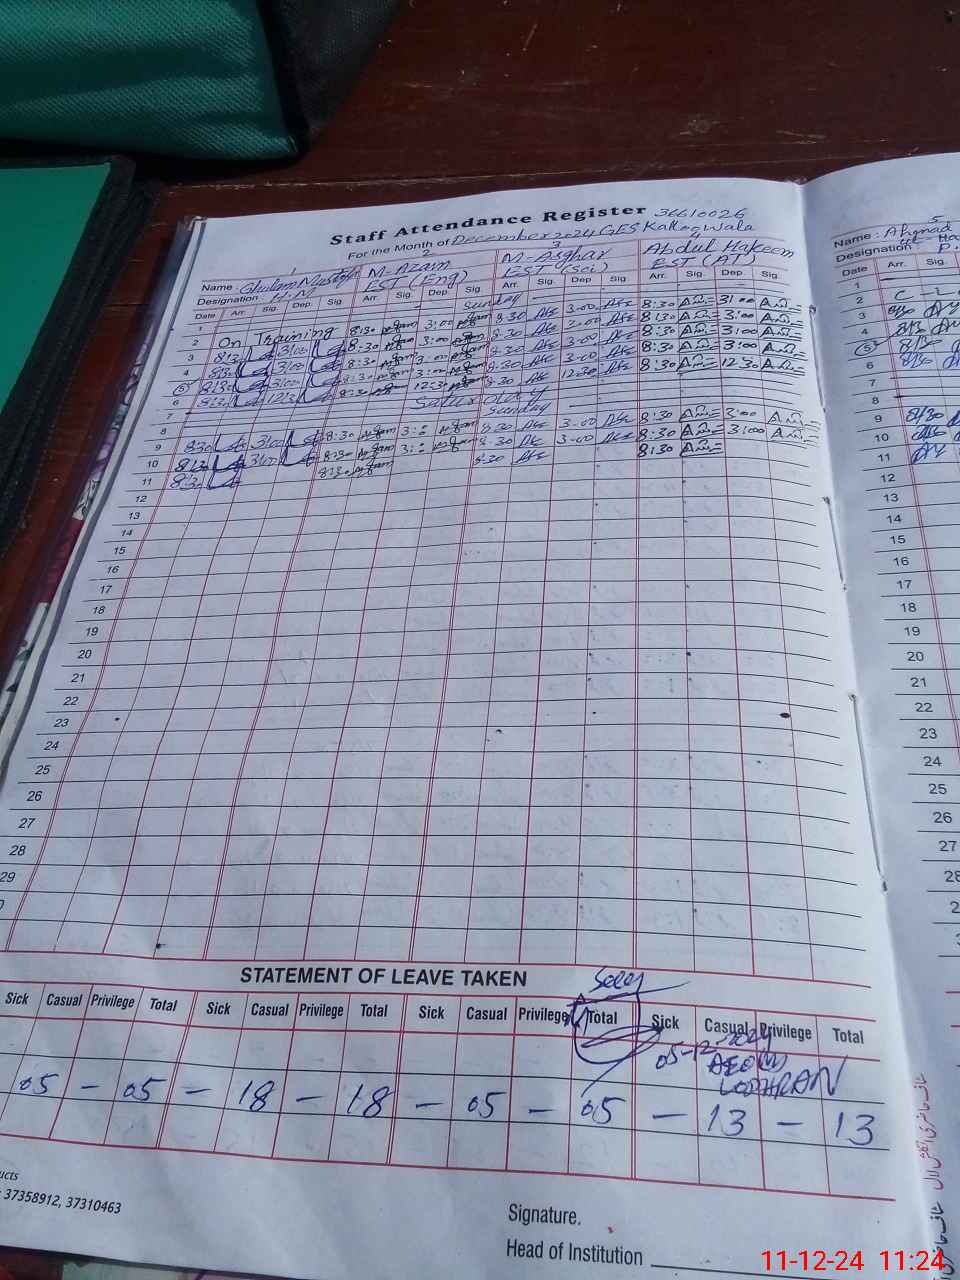 Staff Attendance Register 36610026
For the Month of December 2024 GES Kalloo Wala
1 2 3 4
Name : Ghulam Mustafa M-Azam M-Asghar Abdul Hakeem
Designation : H.M EST (Eng) EST (Sci) EST (AT)
Date Arr. Sig. Dep. Sig. Arr. Sig. Dep. Sig. Arr. Sig. Dep. Sig. Arr. Sig. Dep. Sig.
1 Sunday
2 On Training 8:30 3:00 8:30 3-00 8:30 3:00
3 8:30 3:00 8:30 3:00 8:30 3-00 8:30 3:00
4 8:30 3:00 8:30 3:00 8:30 3-00 8:30 3:00
5 8:30 3:00 8:30 3:00 8:30 3-00 8:30 3:00
6 8:30 12:30 8:30 12:30 8:30 12:30 8:30 12:30
7 Saturday
8 Sunday
9 8:30 3:00 8:30 3:0 8:30 3-00 8:30 3:00
10 8:30 3:00 8:30 3:0 8:30 3-00 8:30 3:00
11 8:30 8:30 8:30 8:30
12
13
14
15
16
17
18
19
20
21
22
23
24
25
26
27
28
29
STATEMENT OF LEAVE TAKEN
Sick Casual Privilege Total Sick Casual Privilege Total Sick Casual Privilege Total Sick Casual Privilege Total
05-12-2024
AEO (M)
LODHRAN
05 – 05 – 18 – 18 – 05 – 05 – 13 – 13
37358912, 37310463
Signature.
Head of Institution
5
Name : Ahmad
Designation : P.
Date Arr. Sig.
1
2 C L
3 8:30
4 8:30
5 8:30
6 8:30
7
8
9 8:30
10
11
12
13
14
15
16
17
18
19
20
21
22
23
24
25
26
27
28
11-12-24 11:24